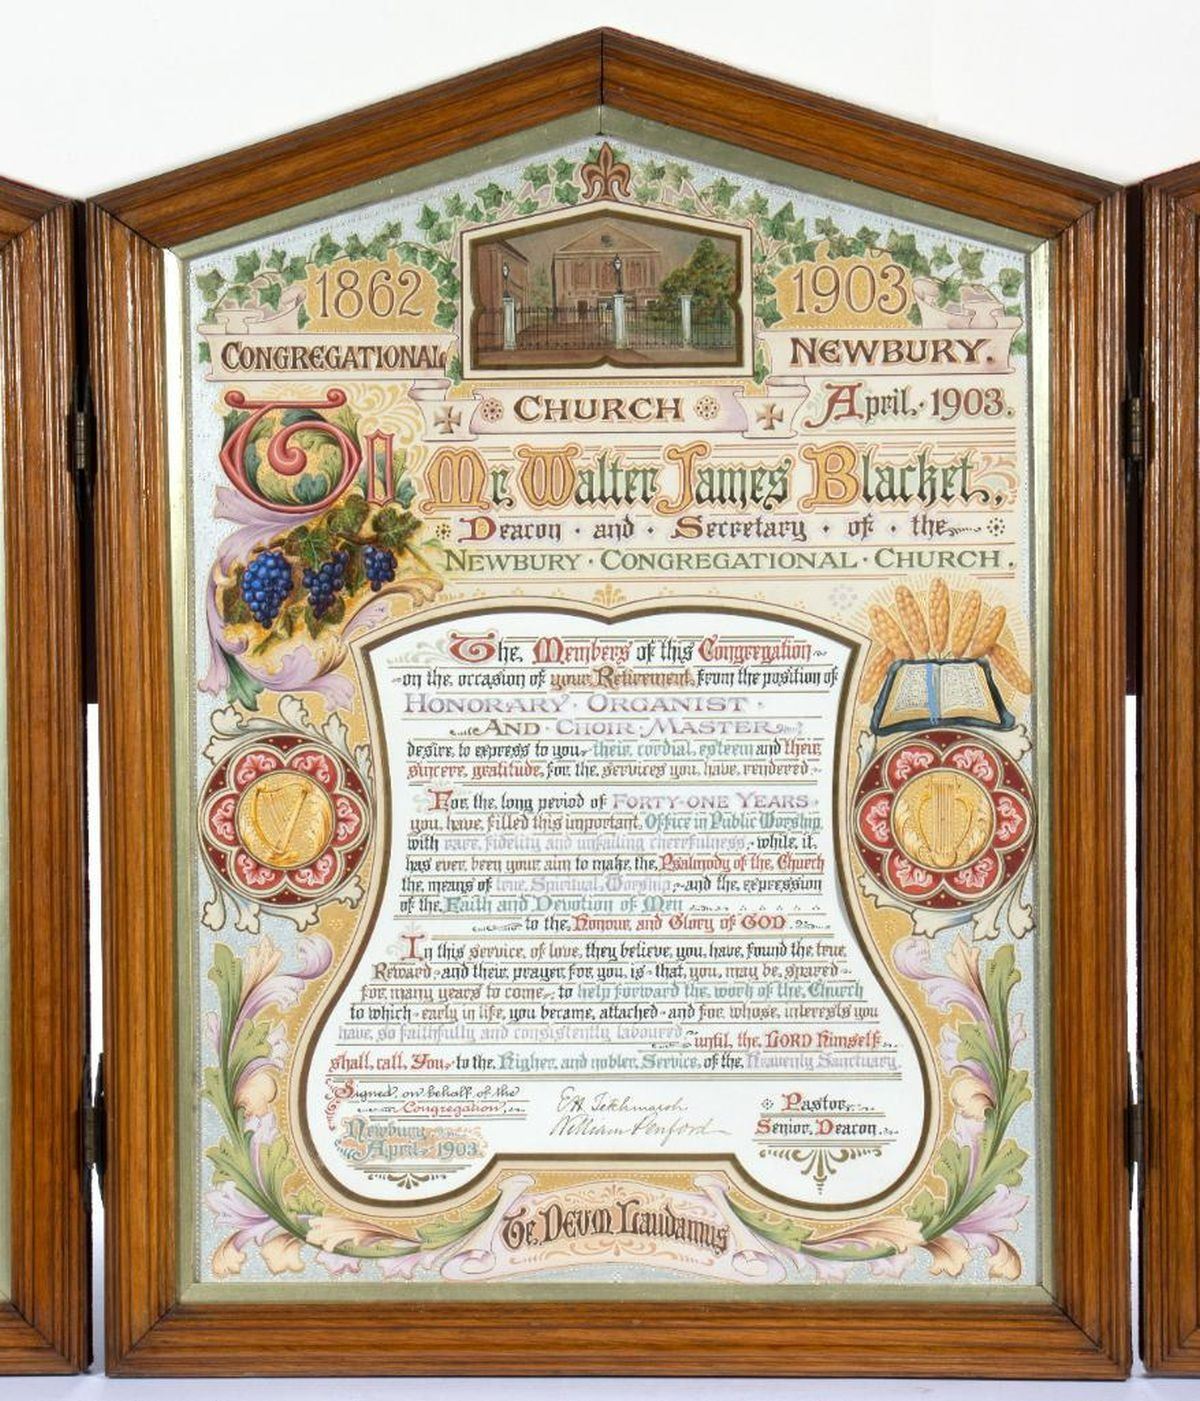 1862 1903
CONGREGATIONAL NEWBURY.
CHURCH April, 1903.
To Mr. Walter James Blacket,
Deacon · and · Secretary · of · the
NEWBURY · CONGREGATIONAL · CHURCH.
The Members of this Congregation
on the occasion of your Retirement from the position of
HONORARY · ORGANIST ·
AND · CHOIR · MASTER
desire to express to you, their cordial esteem and their
sincere gratitude, for the services you have rendered.
For the long period of FORTY-ONE YEARS
you have filled this important Office in Public Worship
with rare fidelity and unfailing cheerfulness, while it
has ever been your aim to make the Psalmody of the Church
the means of true Spiritual Worship, and the expression
of the Faith and Devotion of Men
to the Honour and Glory of GOD.
In this service of love, they believe you have found the true
Reward, and their prayer for you is that you may be spared
for many years to come, to help forward the work of the Church
to which early in life you became attached and for whose interests you
have so faithfully and consistently laboured, until the LORD Himself
shall call You to the Higher and nobler Service of the Heavenly Sanctuary.
Signed, on behalf of the
Congregation,
Newbury,
April, 1903.
E H Titchmarsh Pastor,
William Penford Senior Deacon.
Te DEUM Laudamus